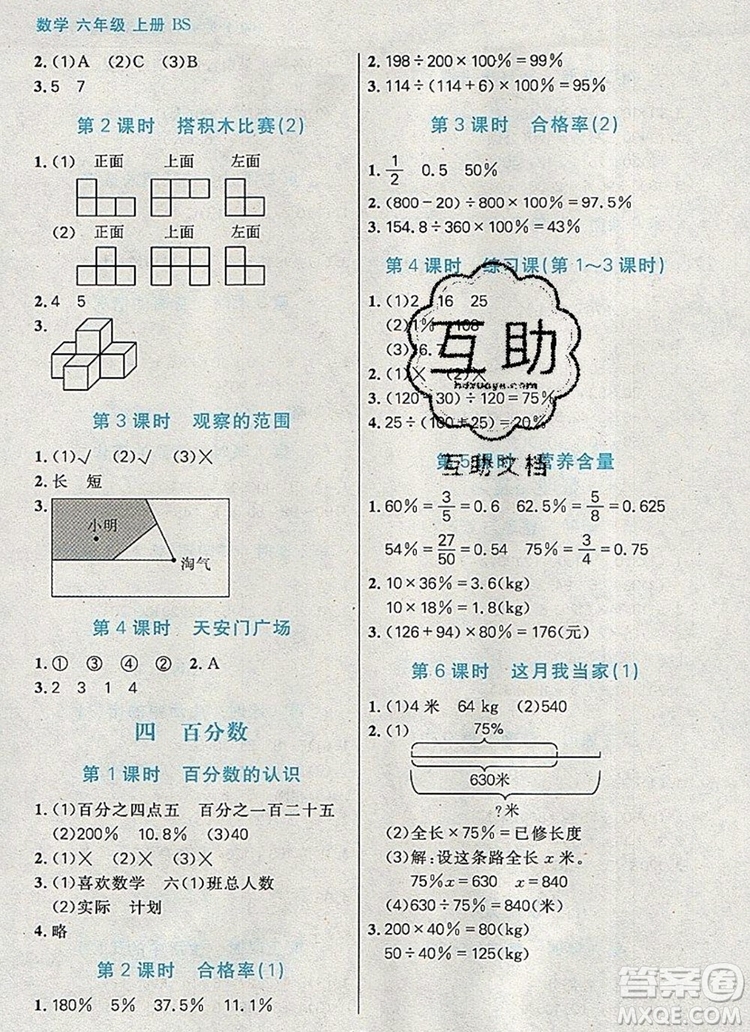 数学 六年级 上册 BS
2.(1)A (2)C (3)B
3.5 7
第2课时 搭积木比赛(2)
1.(1) 正面 上面 左面
(2) 正面 上面 左面
2.4 5
3.
第3课时 观察的范围
1.(1)√ (2)√ (3)×
2.长 短
3.
小明
淘气
第4课时 天安门广场
1.① ③ ④ ② 2.A
3.2 3 1 4
四 百分数
第1课时 百分数的认识
1.(1)百分之四点五 百分之一百二十五
(2)200% 10.8% (3)40
2.(1)× (2)× (3)×
3.(1)喜欢数学 六(1)班总人数
(2)实际 计划
4.略
第2课时 合格率(1)
1.180% 5% 37.5% 11.1%
2.198÷200×100%=99%
3.114÷(114+6)×100%=95%
第3课时 合格率(2)
1.1/2 0.5 50%
2.(800-20)÷800×100%=97.5%
3.154.8÷360×100%=43%
第4课时 练习课(第1～3课时)
1.(1)2 16 25
(2)1% 108
(3)16.7
2.(1)× (2)×
3.(120-30)÷120=75%
4.25÷(100+25)=20%
第5课时 营养含量
1.60%=3/5=0.6 62.5%=5/8=0.625
54%=27/50=0.54 75%=3/4=0.75
2.10×36%=3.6(kg)
10×18%=1.8(kg)
3.(126+94)×80%=176(元)
第6课时 这月我当家(1)
1.(1)4米 64 kg (2)540
2.(1)
75%
630米
?米
(2)全长×75%=已修长度
(3)解:设这条路全长x米。
75%x=630 x=840
(4)630÷75%=840(米)
3.200×40%=80(千米)
50÷40%=125(千米)
互助
hdzuoye.com
互助文档
答案圈
MXQE.COM